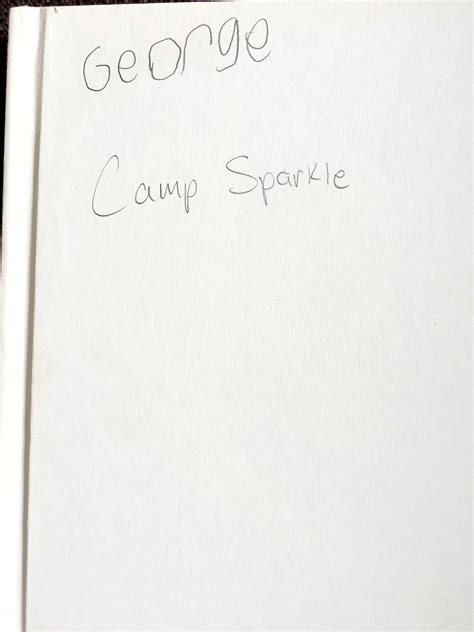 George
Camp Sparkle